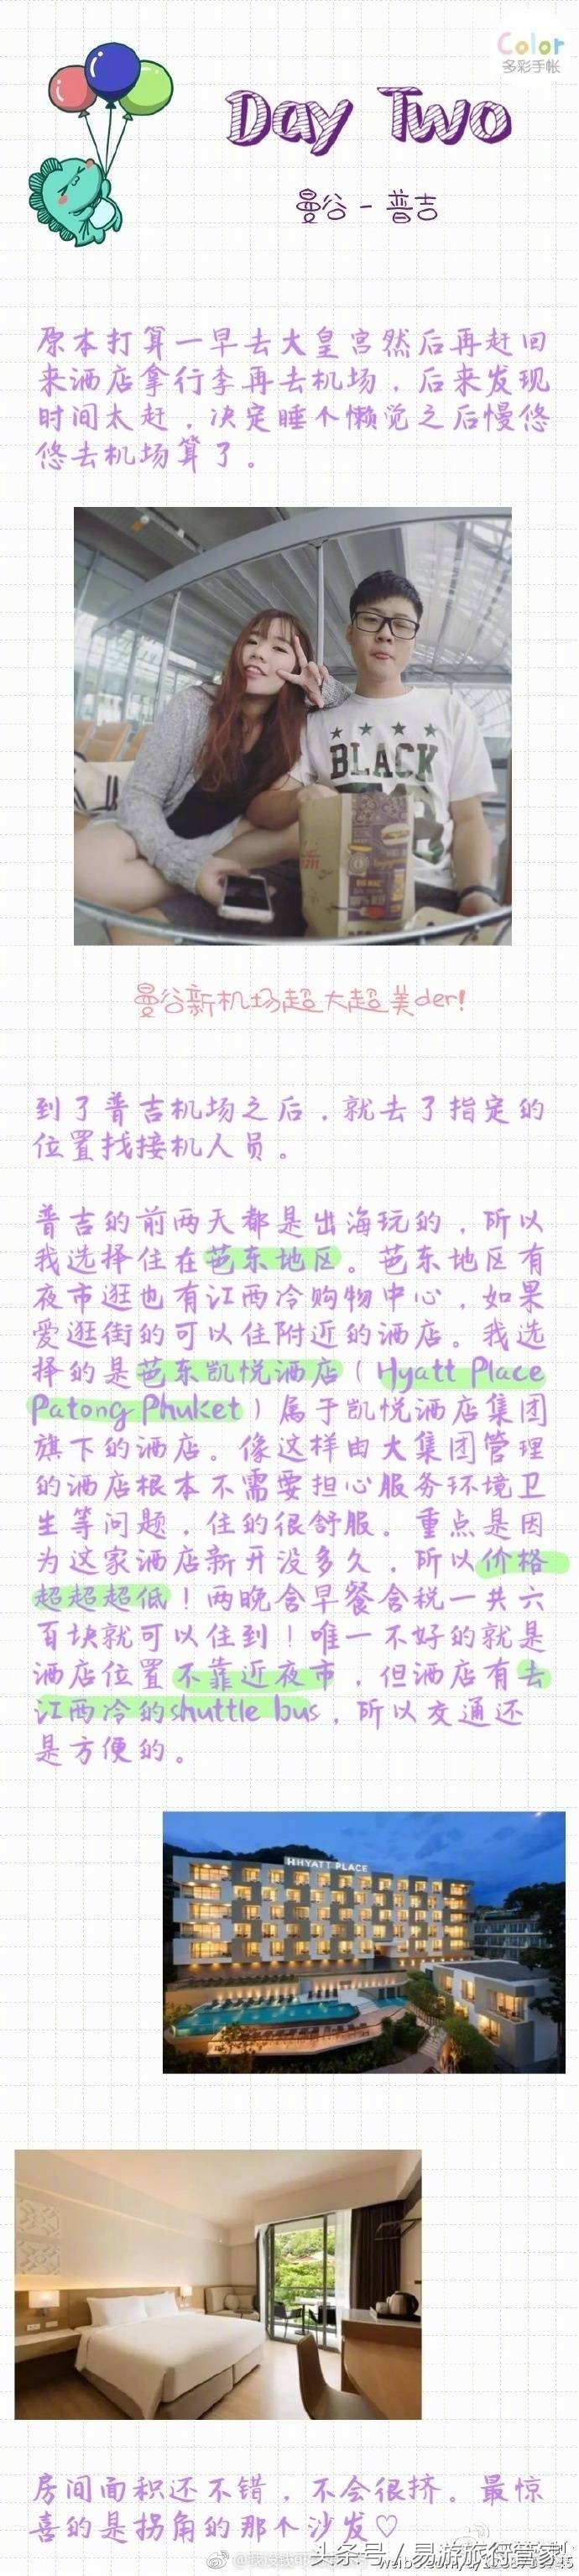 Color
多彩手帐
Day Two
曼谷 - 普吉
原本打算一早去大皇宫然后再赶回
来酒店拿行李再去机场，后来发现
时间太赶，决定睡个懒觉之后慢悠
悠去机场算了。
★ ★ ★ ★
BLACK
BIG MAC
100% BEEF
曼谷新机场超大超美der!
到了普吉机场之后，就去了指定的
位置找接机人员。
普吉的前两天都是出海玩的，所以
我选择住在芭东地区。芭东地区有
夜市逛也有江西冷购物中心，如果
爱逛街的可以住附近的酒店。我选
择的是芭东凯悦酒店（Hyatt Place
Patong Phuket）属于凯悦酒店集团
旗下的酒店。像这样由大集团管理
的酒店根本不需要担心服务环境卫
生等问题，住的很舒服。重点是因
为这家酒店新开没多久，所以价格
超超超低！两晚含早餐含税一共六
百块就可以住到！唯一不好的就是
酒店位置不靠近夜市，但酒店有去
江西冷的shuttle bus，所以交通还
是方便的。
HYATT PLACE
房间面积还不错，不会很挤。最惊
喜的是拐角的那个沙发♡
头条号 / 易游旅行管家